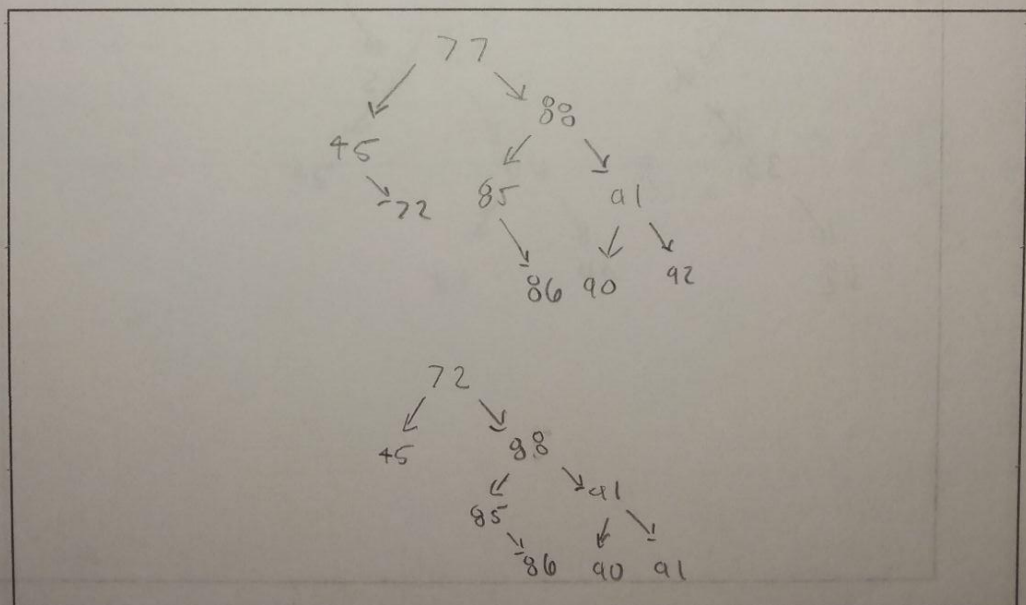 77
88
45
85 91
72
86 90 92
72
45 88
85 91
86 90 91